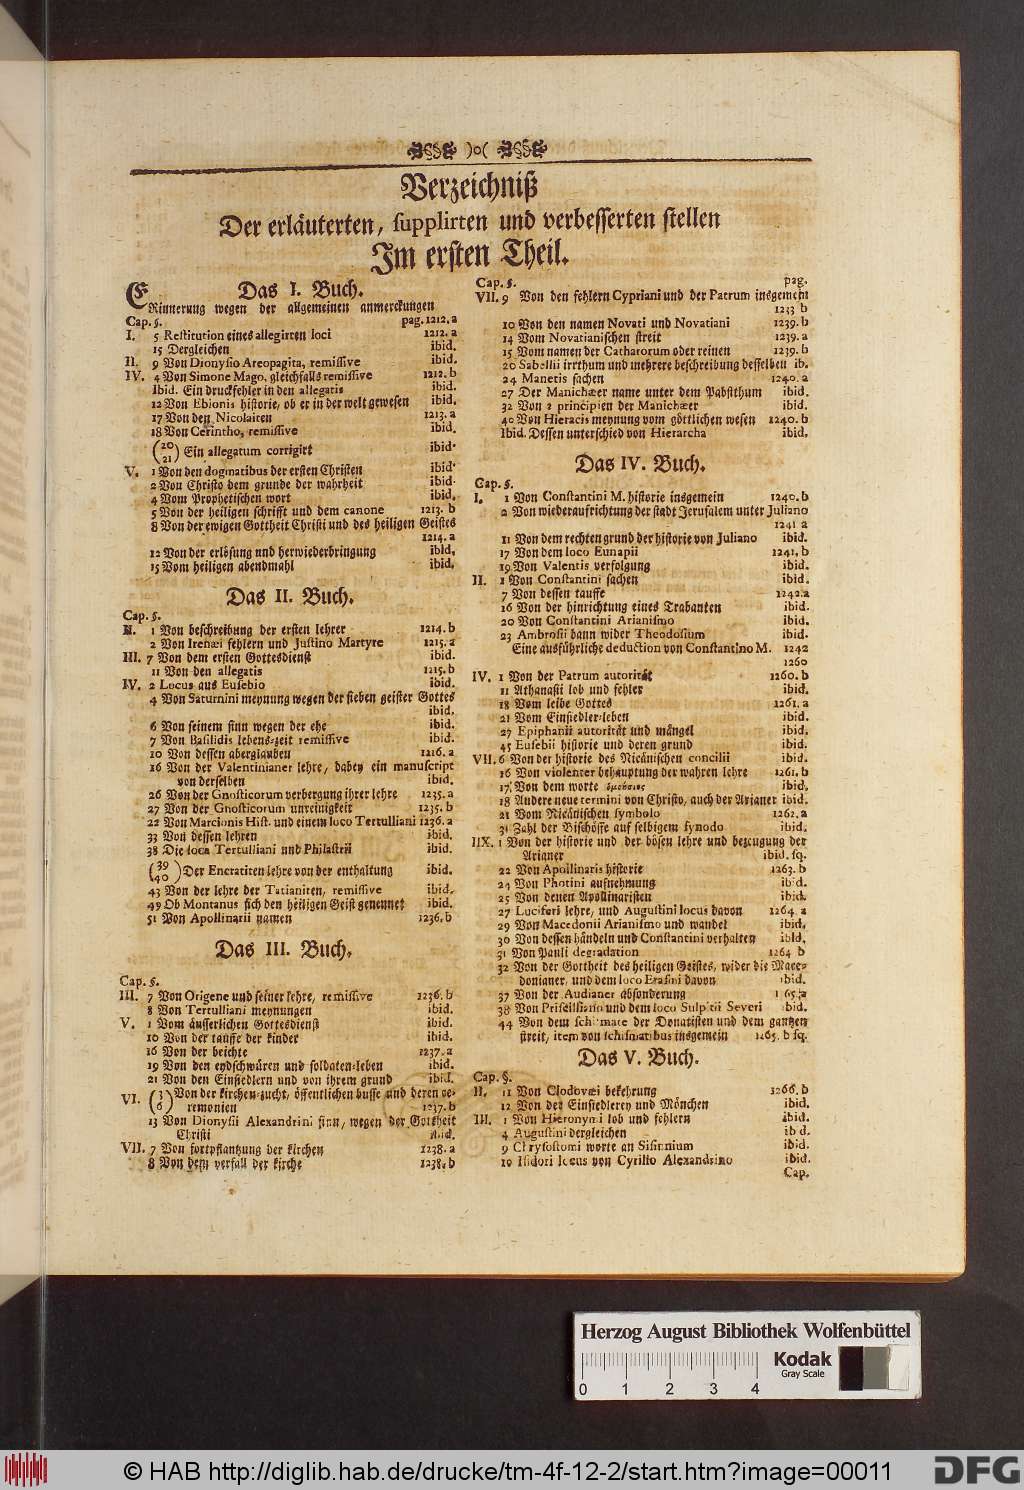 )o(
Verzeichniß
Der erläuterten, supplirten und verbesserten stellen
Im ersten Theil.
Das I. Buch.
ERinnerung wegen der allgemeinen anmerckungen
Cap. §. pag. 1212. a
I. 5 Restitution eines allegirten loci 1212. a
15 Dergleichen ibid.
II. 9 Von Dionysio Areopagita, remissive ibid.
IV. 4 Von Simone Mago, gleichfalls remissive 1212. b
Ibid. Ein druckfehler in den allegatis ibid.
12 Von Ebionis historie, ob er in der welt gewesen ibid.
17 Von den Nicolaiten 1213. a
18 Von Cerintho, remissive ibid.
(20 21) Ein allegatum corrigirt ibid.
V. 1 Von den dogmatibus der ersten Christen ibid.
2 Von Christo dem grunde der wahrheit ibid.
4 Vom Prophetischen wort ibid.
5 Von der heiligen schrifft und dem canone 1213. b
8 Von der ewigen Gottheit Christi und des heiligen Geistes
1214. a
12 Von der erlösung und herwiederbringung ibid.
15 Vom heiligen abendmahl ibid.
Das II. Buch.
Cap. §.
II. 1 Von beschreibung der ersten lehrer 1214. b
2 Von Irenæi fehlern und Justino Martyre 1215. a
III. 7 Von dem ersten Gottesdienst ibid.
11 Von den allegatis 1215. b
IV. 2 Locus aus Eusebio ibid.
4 Von Saturnini meynung wegen der sieben geister Gottes
ibid.
6 Von seinem sinn wegen der ehe ibid.
7 Von Basilidis lebens-zeit remissive ibid.
10 Von dessen aberglauben 1216. a
16 Von der Valentinianer lehre, dabey ein manuscript
von derselben ibid.
26 Von der Gnosticorum verbergung ihrer lehre 1235. a
27 Von der Gnosticorum unreinigkeit 1235. b
22 Von Marcionis Hist. und einem loco Tertulliani 1236. a
33 Von dessen lehren ibid.
38 Die loca Tertulliani und Philastrii ibid.
(39 40) Der Encratiten lehre von der enthaltung ibid.
43 Von der lehre der Tatianiten, remissive ibid.
49 Ob Montanus sich den heiligen Geist genennet ibid.
51 Von Apollinarii namen 1236. b
Das III. Buch.
Cap. §.
III. 7 Von Origene und seiner lehre, remissive 1236. b
8 Von Tertulliani meynungen ibid.
V. 1 Vom äusserlichen Gottesdienst ibid.
10 Von der tauffe der kinder ibid.
16 Von der beichte 1237. a
19 Von den eydschwüren und soldaten-leben ibid.
21 Von den Einsiedlern und von ihrem grund ibid.
VI. (3 6) Von der kirchen-zucht, öffentlichen busse und deren ce-
remonien 1237. b
13 Von Dionysii Alexandrini sinn, wegen der Gottheit
Christi ibid.
VII. 7 Von fortpflantzung der kirchen 1238. a
8 Von dem verfall der kirche 1238. b
Cap. §. pag.
VII. 9 Von den fehlern Cypriani und der Patrum insgemein
1233 b
10 Von den namen Novati und Novatiani 1239. b
14 Vom Novatianischen streit 1239. a
15 Vom namen der Catharorum oder reinen 1239. b
20 Sabellii irrthum und mehrere beschreibung desselben ib.
24 Manetis sachen 1240. a
27 Der Manichæer name unter dem Pabstthum ibid.
32 Von 2 principien der Manichæer ibid.
40 Von Hieracis meynung vom göttlichen wesen 1240. b
Ibid. Dessen unterschied von Hierarcha ibid.
Das IV. Buch.
Cap. §.
I. 1 Von Constantini M. historie insgemein 1240. b
2 Von wiederaufrichtung der stadt Jerusalem unter Juliano
1241 a
11 Von dem rechten grund der historie von Juliano ibid.
17 Von dem loco Eunapii 1241. b
19 Von Valentis verfolgung ibid.
II. 1 Von Constantini sachen ibid.
7 Von dessen tauffe 1242. a
16 Von der hinrichtung eines Trabanten ibid.
20 Von Constantini Arianismo ibid.
23 Ambrosii bann wider Theodosium ibid.
Eine ausführliche deduction von Constantino M. 1242
1260
IV. 1 Von der Patrum autorität 1260. b
11 Athanasii lob und fehler ibid.
18 Vom leibe Gottes 1261. a
21 Vom Einsiedler-leben ibid.
27 Epiphanii autorität und mängel ibid.
45 Eusebii historie und deren grund ibid.
VII. 6 Von der historie des Nicänischen concilii ibid.
16 Von violenter behauptung der wahren lehre 1261. b
17 Von dem worte ὁμούσιος ibid.
18 Andere neue termini von Christo, auch der Arianer ibid.
21 Vom Nicänischen symbolo 1262. a
31 Zahl der Bischöffe auf selbigem synodo ibid.
IIX. 1 Von der historie und der bösen lehre und bezeugung der
Arianer ibid. sq.
22 Von Apollinaris historie 1263. b
24 Von Photini aufnehmung ibid.
25 Von denen Apollinaristen ibid.
27 Luciferi lehre, und Augustini locus davon 1264. a
29 Von Macedonii Arianismo und wandel ibid.
30 Von dessen händeln und Constantini verhalten ibid.
31 Von Pauli degradation 1264 b
32 Von der Gottheit des heiligen Geistes, wider die Mace-
donianer, und dem loco Erasini davon ibid.
37 Von der Audianer absonderung 1265. a
38 Von Priscilliano und dem loco Sulpitii Severi ibid.
44 Von dem schismate der Donatisten und dem gantzen
streit, item von schismatibus insgemein 1265. b sq.
Das V. Buch.
Cap. §.
II. 11 Von Clodovæi bekehrung 1266. b
12 Von der Einsiedlerey und Mönchen ibid.
III. 1 Von Hieronymi lob und fehlern ibid.
4 Augustini dergleichen ibid.
9 Chrysostomi worte an Sisinnium ibid.
10 Isidori locus von Cyrillo Alexandrino ibid.
Cap.
Herzog August Bibliothek Wolfenbüttel
Kodak
Gray Scale
0 1 2 3 4
© HAB http://diglib.hab.de/drucke/tm-4f-12-2/start.htm?image=00011
DFG